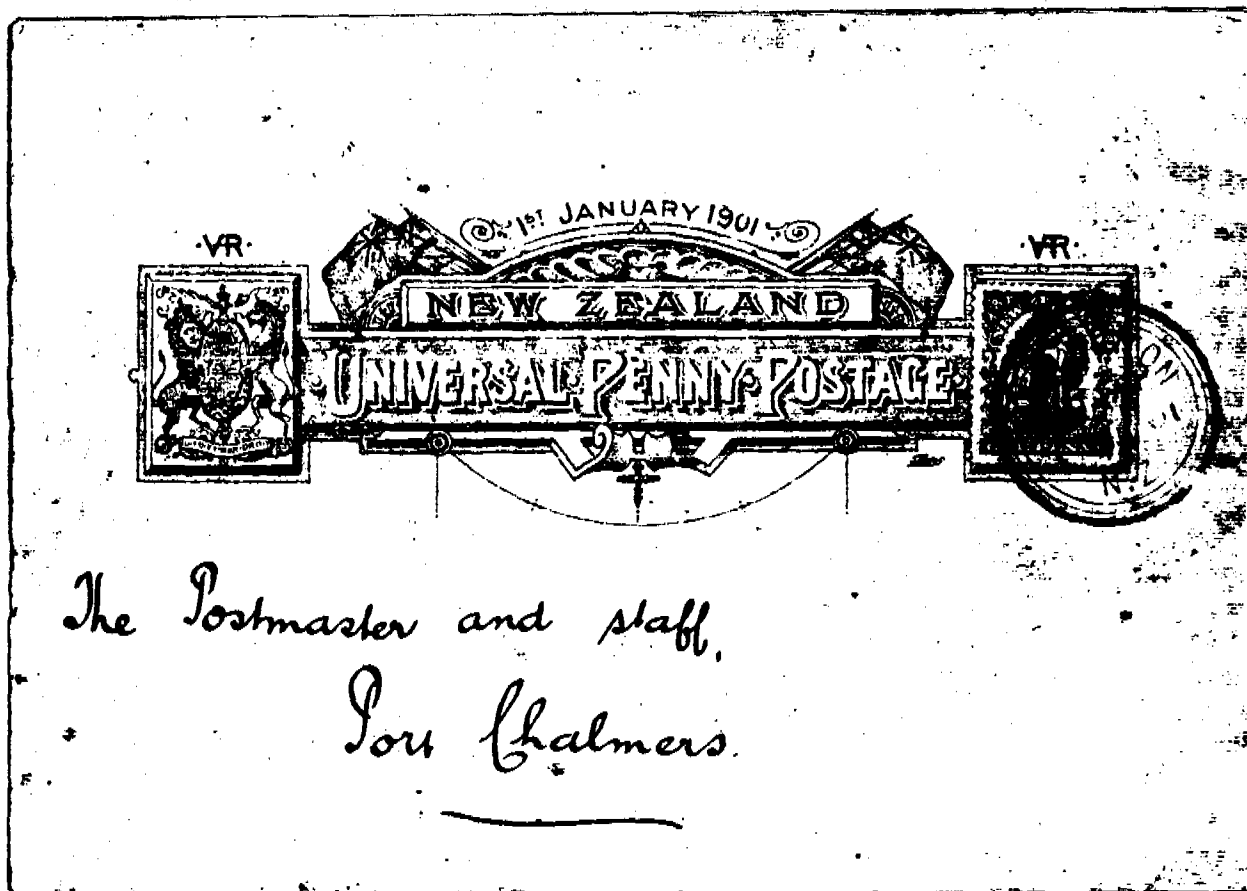 1ST JANUARY 1901
·VR· ·VR·
NEW ZEALAND
UNIVERSAL·PENNY·POSTAGE·
The Postmaster and staff,
Port Chalmers.